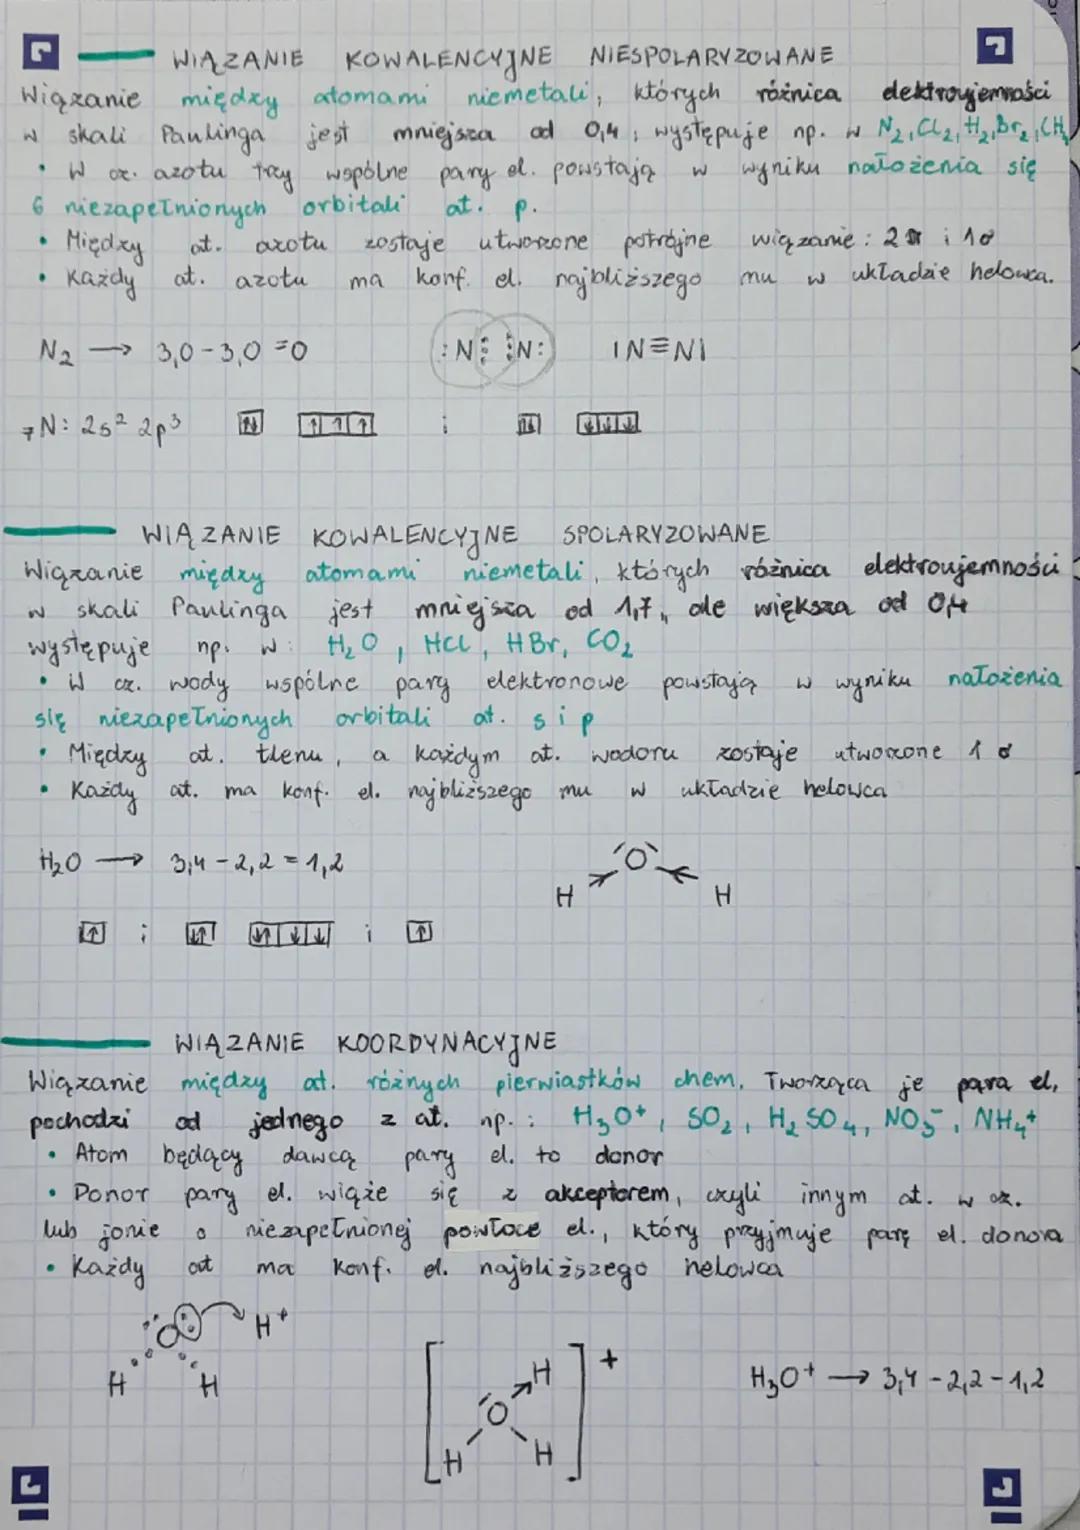 WIĄZANIE KOWALENCYJNE NIESPOLARYZOWANE
Wiązanie między atomami niemetali, których różnica elektroujemności
w skali Paulinga jest mniejsza od 0,4, występuje np. w N₂, Cl₂, H₂, Br₂, CH₄
• W cz. azotu trzy wspólne pary el. powstają w wyniku nałożenia się
6 niezapełnionych orbitali at. p.
• Między at. azotu zostaje utworzone potrójne wiązanie: 2π i 1σ
• Każdy at. azotu ma konf. el. najbliższego mu w układzie helowca.
N₂ → 3,0-3,0=0 :N⋮⋮N: IN≡NI
₇N: 2s² 2p³ ↑↓ ↑ ↑ ↑ ; ↑↓ ↓ ↓ ↓
WIĄZANIE KOWALENCYJNE SPOLARYZOWANE
Wiązanie między atomami niemetali, których różnica elektroujemności
w skali Paulinga jest mniejsza od 1,7, ale większa od 0,4
występuje np. w: H₂O, HCl, HBr, CO₂
• W cz. wody wspólne pary elektronowe powstają w wyniku nałożenia
się niezapełnionych orbitali at. s i p
• Między at. tlenu, a każdym at. wodoru zostaje utworzone 1 σ
• Każdy at. ma konf. el. najbliższego mu w układzie helowca
H₂O → 3,4-2,2=1,2
O
H H
↑ ; ↓↑ ↓↑ ↓ ↓ ; ↑
WIĄZANIE KOORDYNACYJNE
Wiązanie między at. różnych pierwiastków chem. Tworząca je para el.
pochodzi od jednego z at. np.: H₃O⁺, SO₂, H₂SO₄, NO₃⁻, NH₄⁺
• Atom będący dawcą pary el. to donor
• Donor pary el. wiąże się z akceptorem, czyli innym at. w cz.
lub jonie o niezapełnionej powłoce el., który przyjmuje parę el. donora
• Każdy at ma konf. el. najbliższego helowca
O H⁺
H H
[H O H H]⁺
H₃O⁺ → 3,4-2,2-1,2